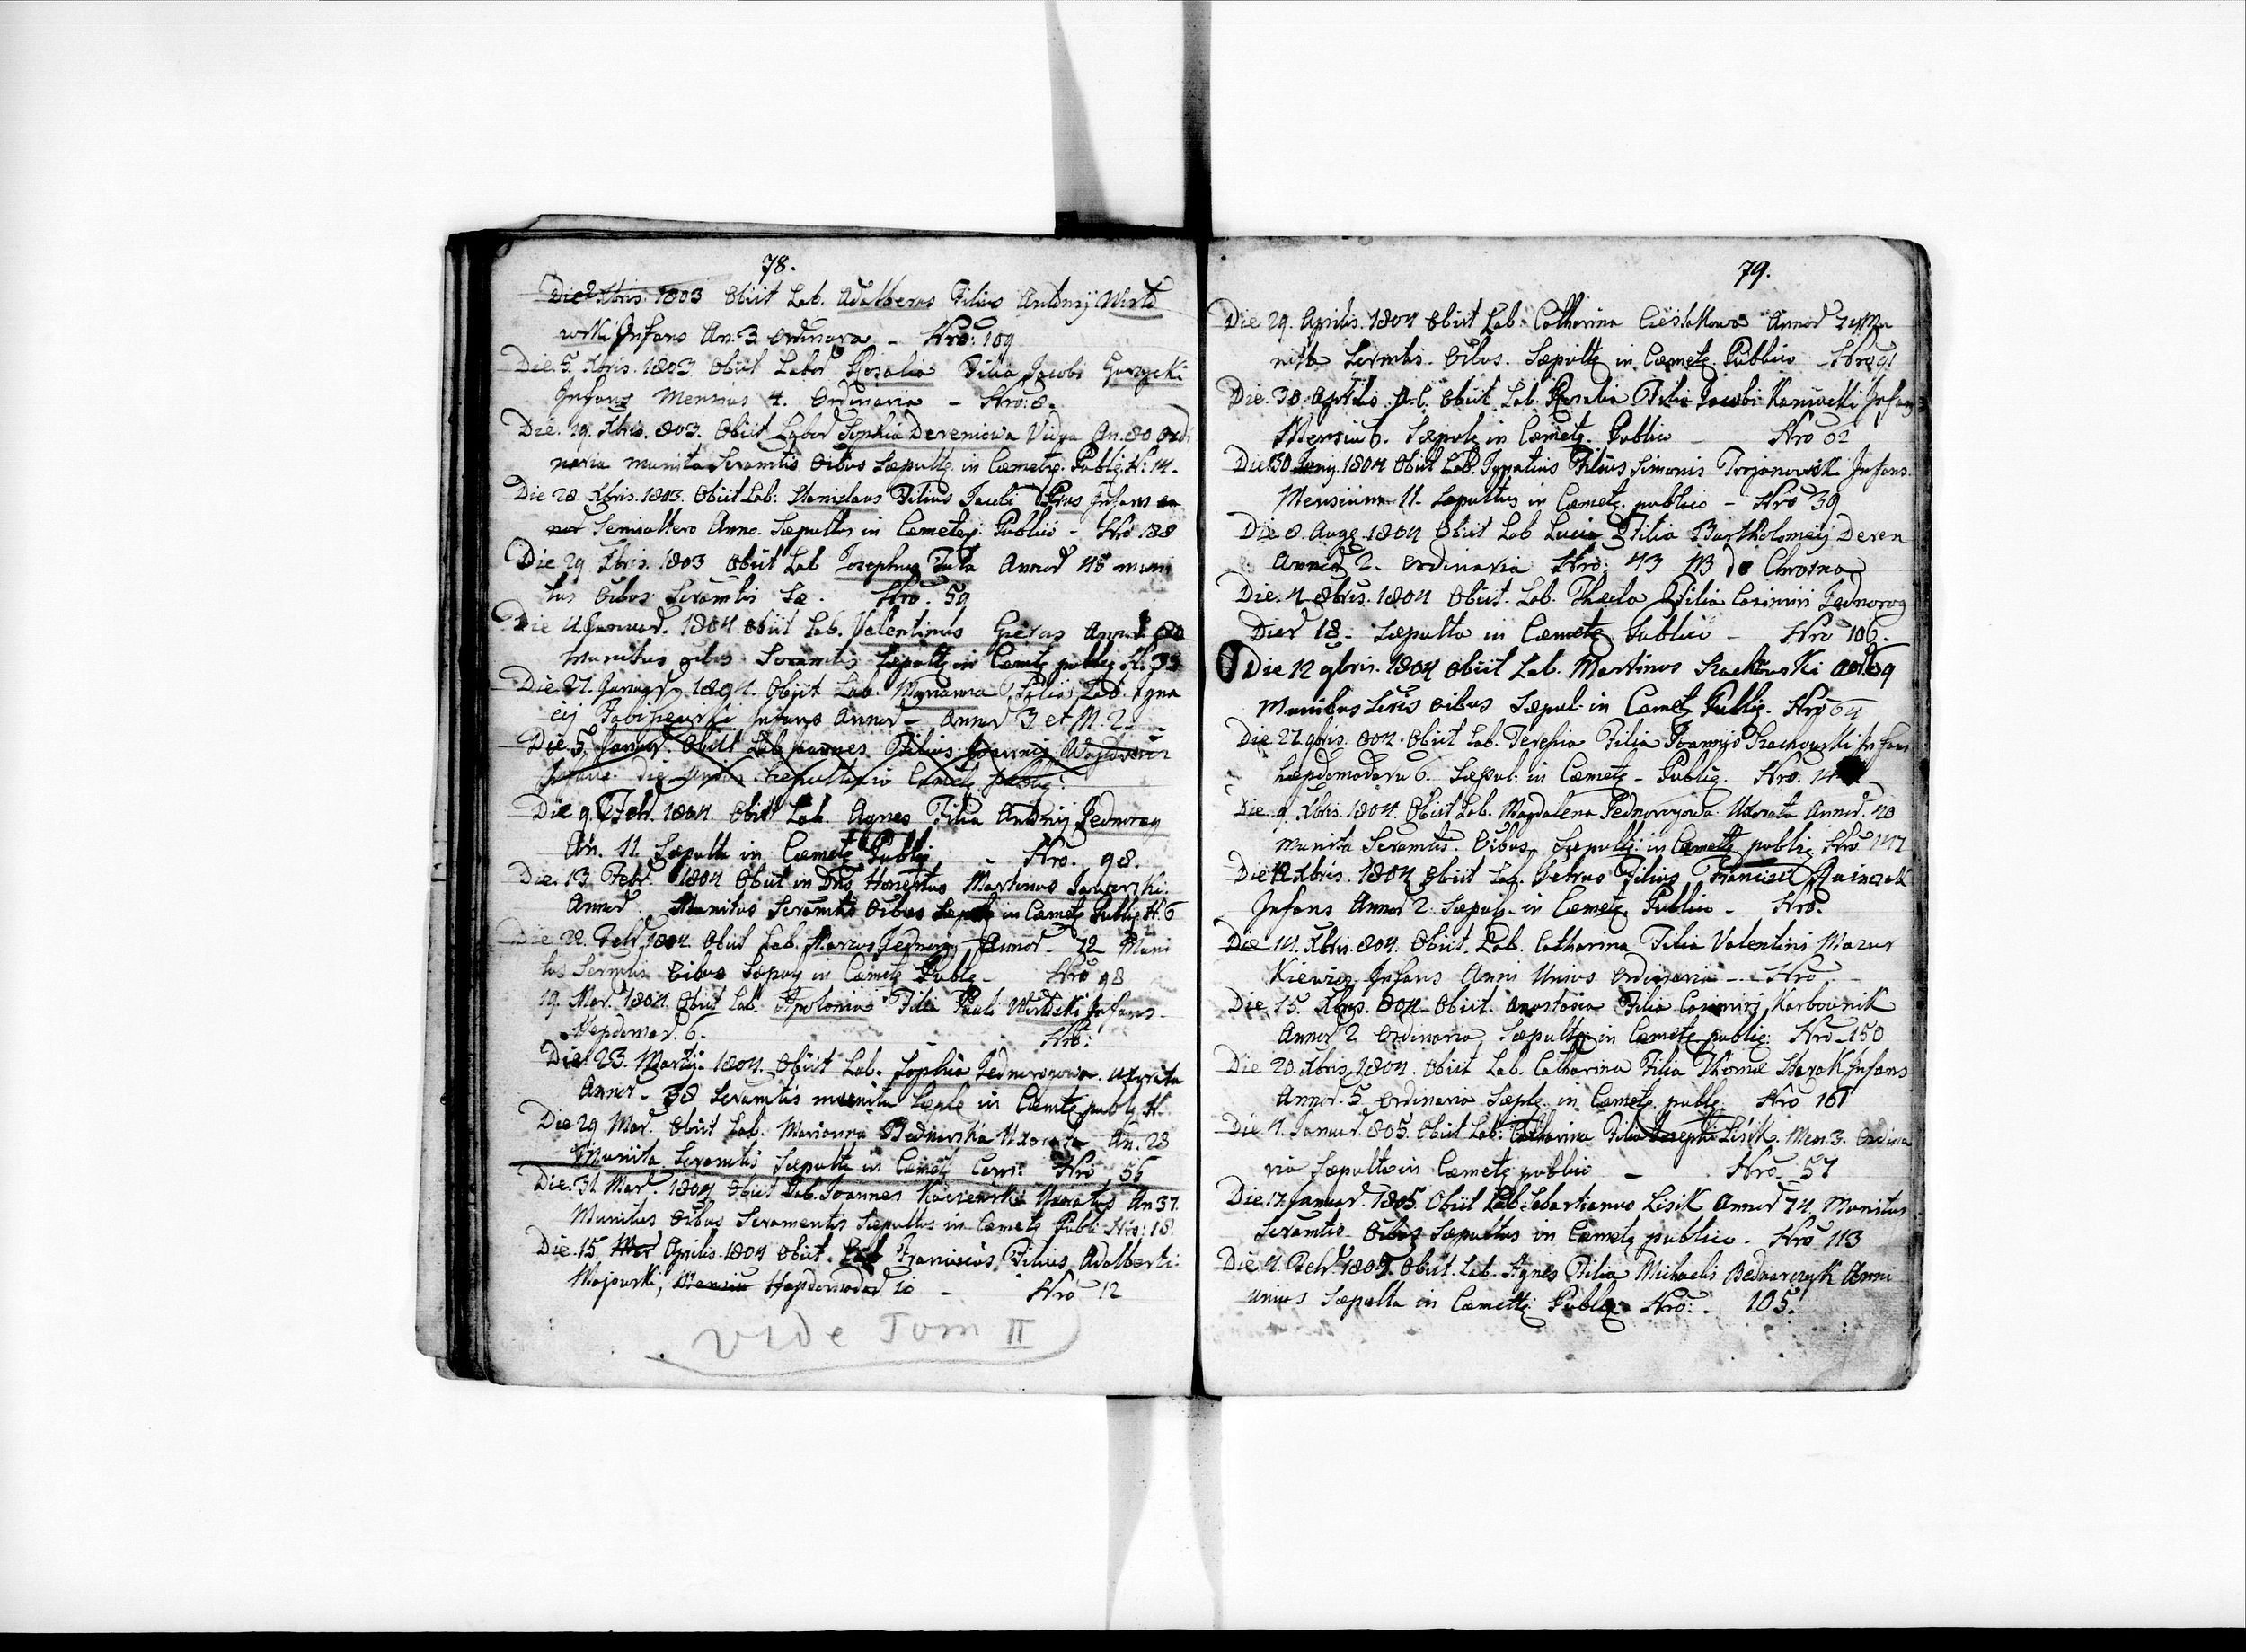 78.
Die 2 Xbris. 1803 Obiit Lab. Adalberus Filius Antonij Wirts
wski Infans An. 3. Ordinaria - Nro: 109
Die. 5. Xbris. 1803. Obiit Labor Rosalia Filia Jacobi Gorzycki
Infans Mensius 4. Ordinaria - Nro: 8.
Die. 19. Xbris. 803. Obiit Labor Sophia Dereniowa Vidua An. 80 Ordi
naria munita Scramtis Oibus Sæpulta in Cæmetę. Publię. N: 14.
Die 28 Xbris. 1803. Obiit Lab: Stanislaus Filius Jacobi Infans
Semialtero Anno. Sæpultus in Cæmetę. Publico - Nro 188
Die 29 Xbris. 1803 Obiit Lab Josephus Tuta Annor 45 muni
tus Oibus Scramtis Sæ. Nro. 59
Die 4. Januar. 1804 Obiit Lab. Valentinus Gieras Annor 60
Munitus Oibus Scramtis Sæpultę in Cæmtę publię N.
Die 27. Januar 1804. Obiit Lab. Marianna Filia Lab. Igna
cij Infans Annor - Annor 3 et M. 2 -
Die 5. Januar. Obiit Lab Joannes Filius
Infans die unius Sæpultus in Cæmetę publię:
Die 9. Febr. 1804. Obiit Lab. Agnes Filia Antonij Jednorog
An. 11. Sæpulta in Cæmetę Publię - Nro. 98.
Die. 13. Febr. 1804 Obiit in Dno Honestus Martinus Jaworski.
Annor. Munitus Scramtis Oibus Sæpul in Cæmetę Publię N. 6
Die 22. Febr. 1804. Obiit Lab. Marcus Jednorog Annor - 72 Muni
tus Scrmtis Oibus Sæpulę in Cæmetę Publę - Nro 98
19. Mar. 1804. Obiit Lab. Apolonia Filia Pauli Infans -
Hepdomad. 6. - Nro:
Die. 23. Martij. 1804. Obiit Lab. Sophia Jednorogowa. Uxorata
Annor - 38 Scramtis munita Sæple in Cæmtę publę N.
Die 29 Mar. Obiit Lab. Marianna Bednarska Uxorata An. 28
Munita Scramtis Sæpulta in Cæmetę Com: Nro 56
Die. 31. Mar. 1804 Obiit Lab. Joannes Uxoratus An 37.
Munitus Oibus Scramentis Sæpultus in Cæmetę Publ: Nro: 18.
Die. 15. Mar Aprilis 1804 Obiit. Lab Franciscus Filius Adalberti
Majewski, Mensiu Hepdomadar 10 - Nro 12
vide Tom II
79.
Die 29. Aprilis. 1804 Obiit Lab. Catharina Annor 74 Mu
nita Scrmtis. Oibus. Sæpultę in Cæmetę Publico Nro 91
Die. 30. Aprilis A. C. Obiit Lab. Rosalia Filia Jacobi Infans
Mensiu 6. Sæpulę in Cæmetę. Publico - Nro 62
Die. 30 Junij. 1804 Obiit Lab. Ignatius Filius Simonis Trojanowsk Infans.
Mensium 11. Sæpultus in Cæmetę. publico - Nro 39
Die 8. Augę. 1804 Obiit Lab Lucia Filia Bartholomeij Deren
Annor 2. Ordinaria Nro: 43 NB de Chrosna
Die. 4 8bris. 1804 Obiit. Lab. Thecla Filia Casimiri Jednorog
Dier 18. Sæpulta in Cæmetę Publico - Nro 106.
Die 12 9bris. 1804 Obiit Lab. Martinus Szachowski an. 69
Munitus Scris Oibus Sæpul. in Cæmetę Publię. Nro 64
Die 27. 9bris. 804. Obiit Lab. Teresia Filia Joannis Szachowski Infans
hæpdomadaru 6. Sæpul: in Cæmetę - Publię. Nro. 14
Die. 9. Xbris. 1804. Obiit Lab. Magdalena Jednorogowa. Uxorata Annor. 40
munita Scramtis. Oibus. Sæpultę: in Cæmetę publię Nro 147
Die 12 Xbris. 1804 Obiit Lab. Petrus Filius Francisci
Infans Annor 2. Sæpulę. in Cæmetę. Publico - Nro.
Die 14. Xbris. 804. Obiit. Lab. Catharina Filia Valentini Mazur
Kiewicz Infans Anni Unius Ordinaria - Nro -
Die. 15. Xbris. 804. Obiit. Anastasia Filia Casimiri Karbownik
Annor 2 Ordinaria, Sæpulta in Cæmetę publię. Nro 150
Die 20. Xbris. 1804. Obiit Lab. Catharina Filia Thomæ Infans
Annor. 5. Ordinaria. Sæplę. in Cæmetę. publę. Nro 161
Die. 4. Januar. 805. Obiit Lab. Catharina Filia Josephi Lisik. Men. 3. Ordina
ria Sæpulta in Cæmetę publico - Nro. 57
Die. 17. Januar. 1805. Obiit Lab. Sebastianus Lisik Annor 74. Munitus
Scramtis. Oibus Sæpultus in Cæmetę publico. Nro 113
Die 4. Febr. 1805. Obiit. Lab. Agnes Filia Michaelis Bednarczyk Anni
unius Sæpulta in Cæmetę Publę Nro: 105.